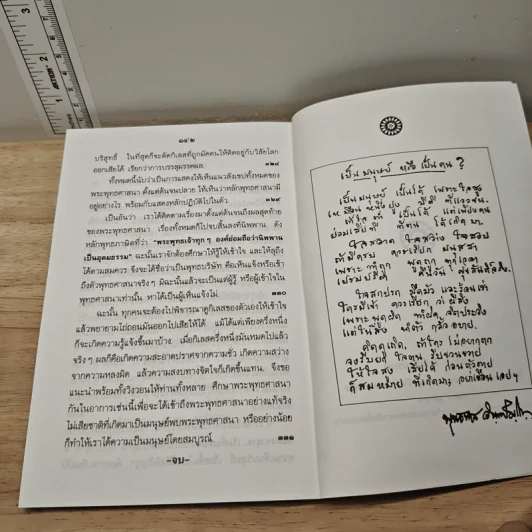 ๑๔๒
บริสุทธิ์ ในที่สุดก็จะตัดกิเลสที่ผูกมัดคนให้ติดอยู่กับวิสัยโลก
ออกเสียได้ เรียกว่าการบรรลุมรรคผล. ๑๒๘
ทั้งหมดนี้นับว่าเป็นการแสดงให้เห็นแนวสังเขปทั้งหมดของ
พระพุทธศาสนา ตั้งแต่ต้นจนปลาย ให้เห็นว่าหลักพุทธศาสนามี
อยู่อย่างไร พร้อมกับแสดงหลักปฏิบัติไปในตัว. ๑๒๙
เป็นอันว่า เราได้ติดตามเรื่องมาตั้งแต่ต้นจนถึงผลสุดท้าย
ของพระพุทธศาสนา เรื่องทั้งหมดก็ไปจบสิ้นลงที่นิพพาน ดัง
หลักพุทธภาษิตที่ว่า "พระพุทธเจ้าทุก ๆ องค์ย่อมถือว่านิพพาน
เป็นอุดมธรรม" ฉะนั้นเราจักต้องศึกษาให้รู้ให้เข้าใจ และให้ลุถึง
ได้ตามสมควร จึงจะได้ชื่อว่าเป็นพุทธบริษัท คือเห็นแจ้งหรือเข้า
ถึงตัวพุทธศาสนาจริง ๆ มิฉะนั้นแล้วจะเป็นแต่ผู้รู้ หรือผู้เข้าใจใน
พุทธศาสนาเท่านั้น หาได้เป็นผู้เห็นแจ้งไม่. ๑๓๐
ฉะนั้น ทุกคนจะต้องไปพิจารณาดูกิเลสของตัวเองให้เข้าใจ
แล้วพยายามไถ่ถอนมันออกไปเสียให้ได้ แม้ได้แต่เพียงครึ่งหนึ่ง
ก็จะเกิดความรู้แจ้งขึ้นมาบ้าง. เมื่อกิเลสครึ่งหนึ่งมันหมดไปแล้ว
จริง ๆ ผลก็คือเกิดความสะอาดปราศจากความชั่ว เกิดความสว่าง
จากความหลงผิด แล้วความสงบทางจิตใจก็เกิดขึ้นแทน. จึงขอ
แนะนำพร้อมทั้งวิงวอนให้ท่านทั้งหลาย ศึกษาพระพุทธศาสนา
กันในอาการเช่นนี้เพื่อจะได้เข้าถึงพระพุทธศาสนาอย่างแท้จริง
ไม่เสียชาติที่เกิดมาเป็นมนุษย์พบพระพุทธศาสนา หรืออย่างน้อย
ก็ทำให้เราได้ความเป็นมนุษย์โดยสมบูรณ์. ๑๓๑
-จบ-
เป็นมนุษย์ หรือ เป็นคน ?
เป็นมนุษย์ เป็นได้ เพราะใจสูง
เหมือนหนึ่งยูง มีดี ที่แววขน
ถ้าใจต่ำ เป็นได้ แต่เพียงคน
ย่อมเสียที ที่ตน ได้เกิดมา
ใจสะอาด ใจสว่าง ใจสงบ
ถ้ามีครบ ควรเรียก มนุสสา
เพราะทำถูก พูดถูก ทุกเวลา
เปรมปรีดา คืนวัน สุขสันต์จริง
ใจสกปรก มืดมัว และร้อนเร่า
ใครมีเข้า ควรเรียก ว่าผีสิง
เพราะพูดผิด ทำผิด จิตประวิง
แต่ในสิ่ง ทำตัว กลั้วอบาย
คิดดูเถิด ถ้าใคร ไม่อยากตก
จงรีบยก ใจตน รีบขวนขวาย
ให้ใจสูง เสียได้ ก่อนตัวตาย
ก็สมหมาย ที่เกิดมา อย่าเชือนเอยฯ
พุทธทาส อินทปัญโญ